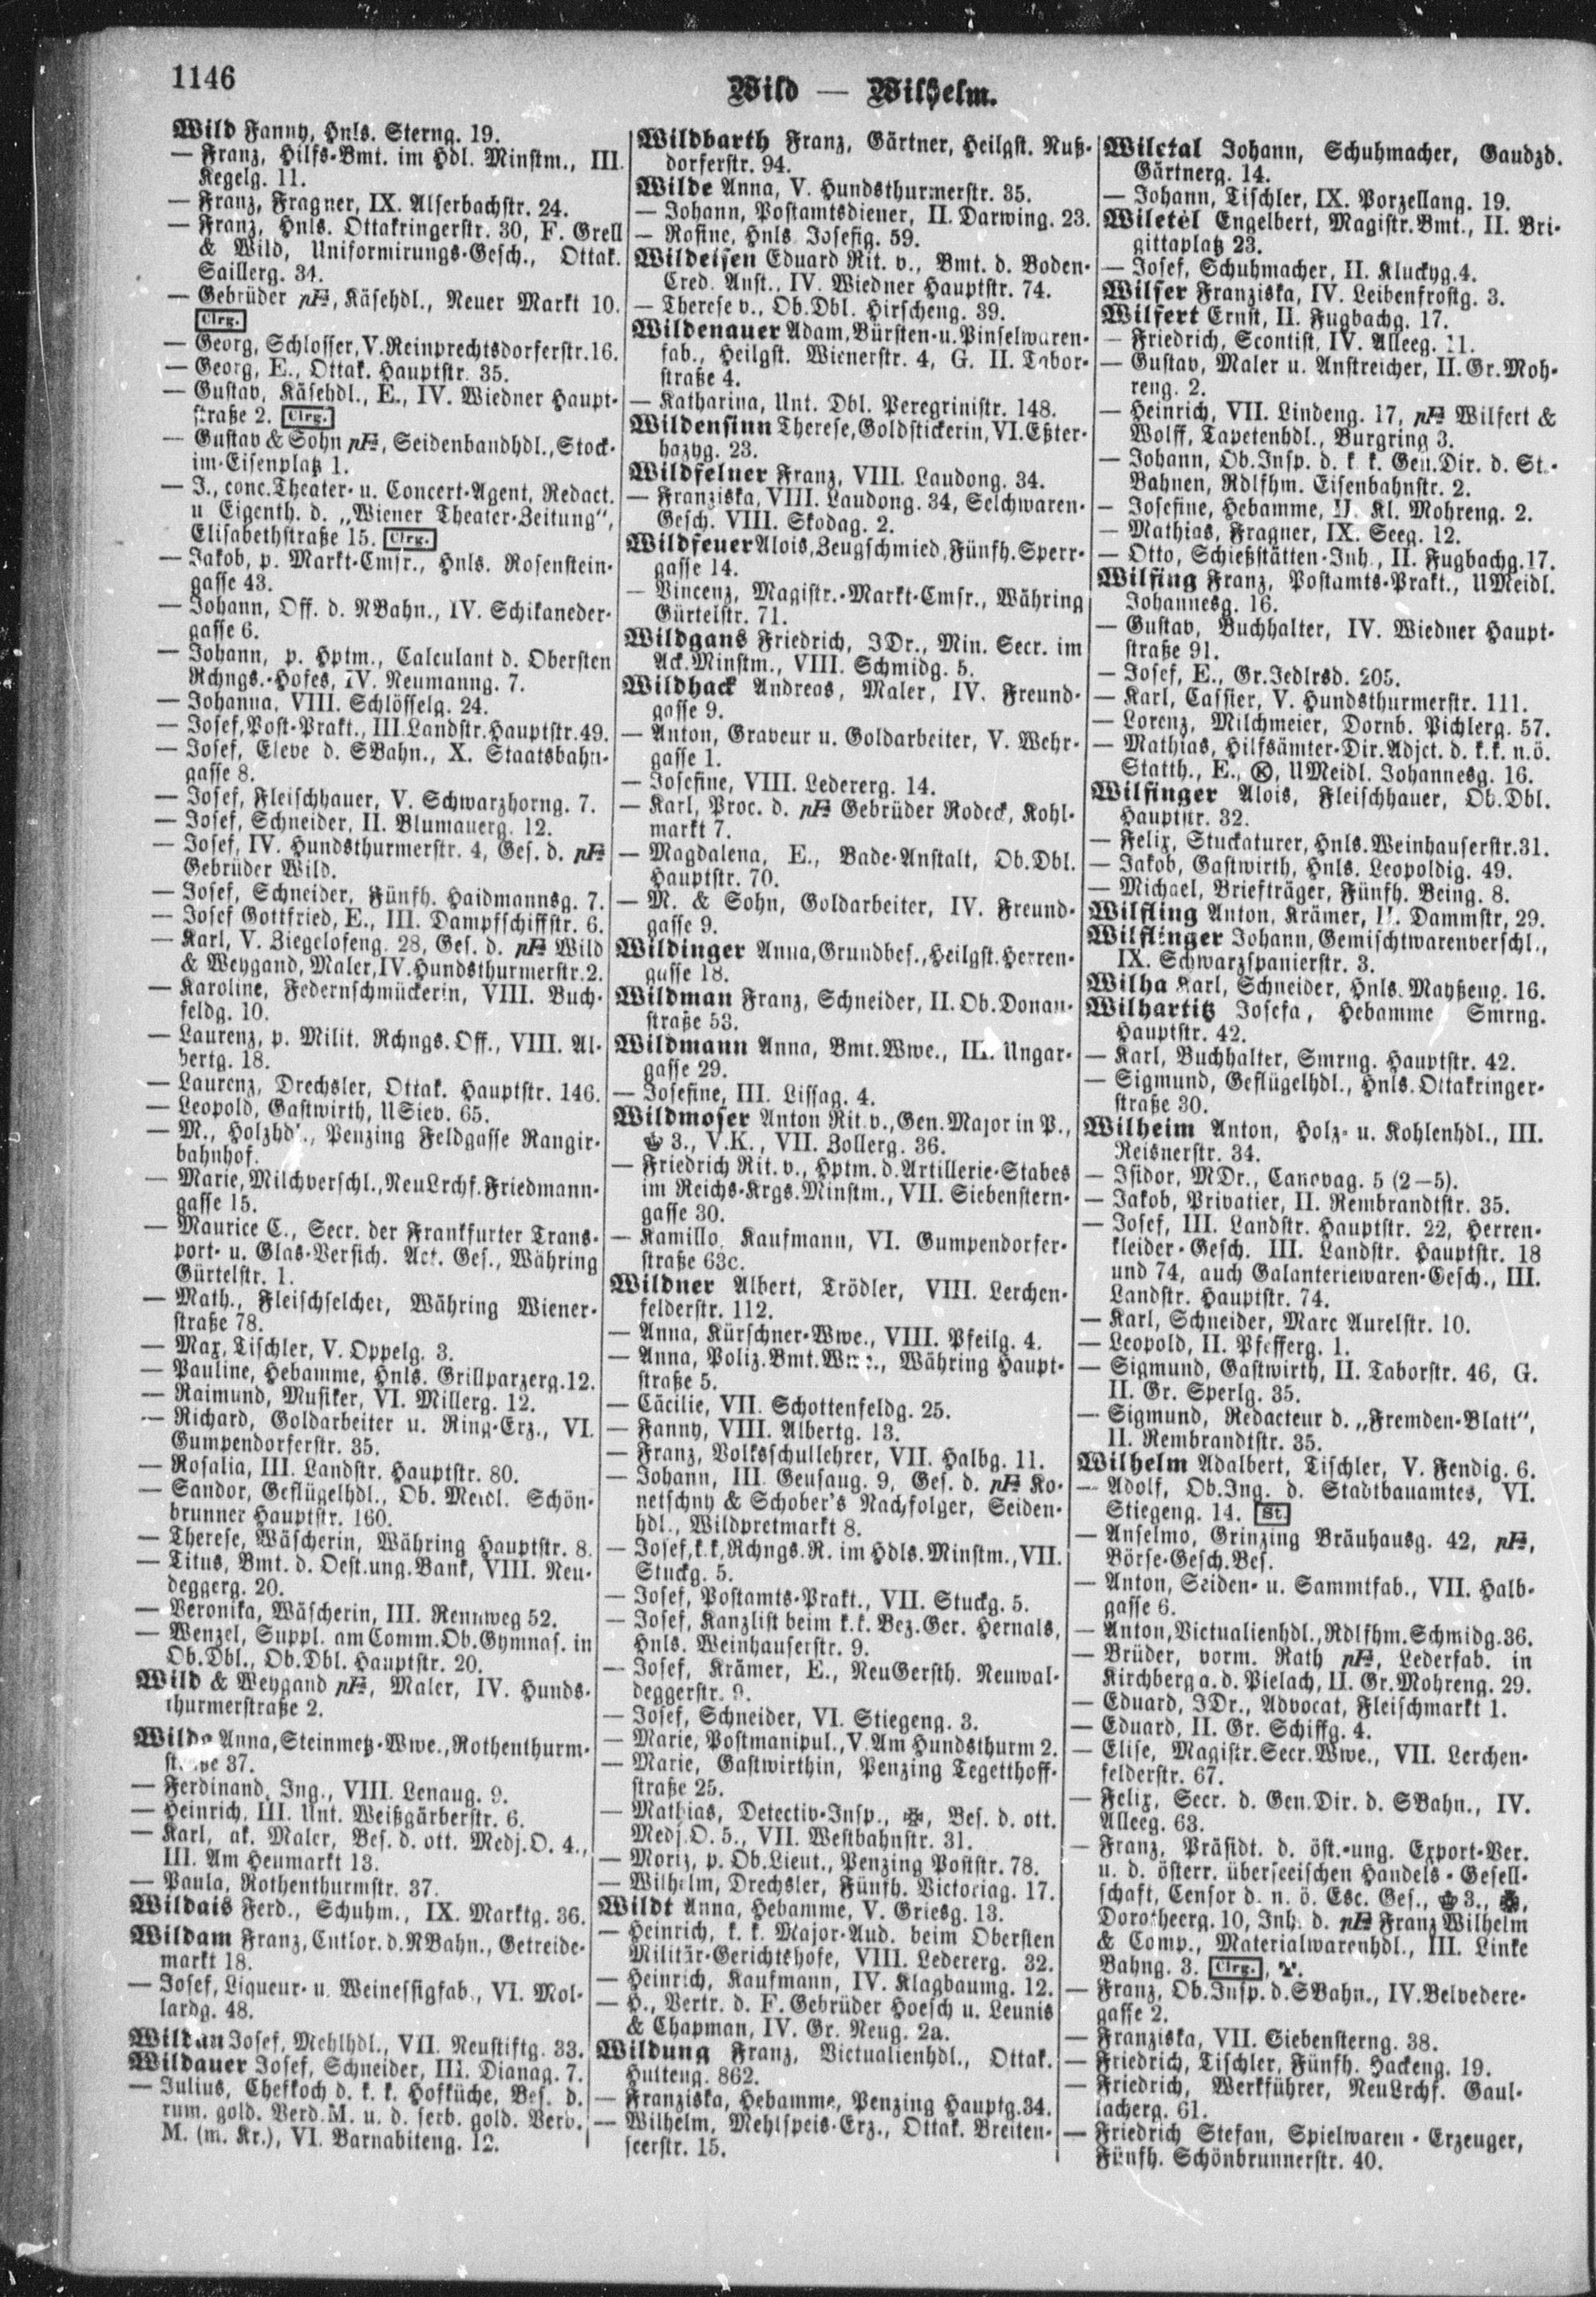 1146
Wild — Wilhelm.
Wild Fanny, Hnls. Sterng. 19.
— Franz, Hilfs-Bmt. im Hdl. Minstm., III.
Kegelg. 11.
— Franz, Fragner, IX. Alserbachstr. 24.
— Franz, Hnls. Ottakringerstr. 30, F. Grell
& Wild, Uniformirungs-Gesch., Ottak.
Saillerg. 34.
— Gebrüder, Käsehdl., Neuer Markt 10.
Clrg.
— Georg, Schlosser, V. Reinprechtsdorferstr. 16.
— Georg, E., Ottak. Hauptstr. 35.
— Gustav, Käsehdl., E., IV. Wiedner Haupt-
straße 2. Clrg.
— Gustav & Sohn, Seidenbandhdl., Stock-
im-Eisenplatz 1.
— J., conc. Theater- u. Concert-Agent, Redact.
u Eigenth. d. „Wiener Theater-Zeitung“,
Elisabethstraße 15. Clrg.
— Jakob, p. Markt-Cmsr., Hnls. Rosenstein-
gasse 43.
— Johann, Off. d. NBahn., IV. Schikaneder-
gasse 6.
— Johann, p. Hptm., Calculant d. Obersten
Rchngs.-Hofes, IV. Neumanng. 7.
— Johanna, VIII. Schlösselg. 24.
— Josef, Post-Prakt., III. Landstr. Hauptstr. 49.
— Josef, Eleve d. SBahn., X. Staatsbahn-
gasse 8.
— Josef, Fleischhauer, V. Schwarzhorng. 7.
— Josef, Schneider, II. Blumauerg. 12.
— Josef, IV. Hundsthurmerstr. 4, Ges. d.
Gebrüder Wild.
— Josef, Schneider, Fünfh. Haidmannsg. 7.
— Josef Gottfried, E., III. Dampfschiffstr. 6.
— Karl, V. Ziegelofeng. 28, Ges. d. Wild
& Weygand, Maler, IV. Hundsthurmerstr. 2.
— Karoline, Federnschmückerin, VIII. Buch-
feldg. 10.
— Laurenz, p. Milit. Rchngs. Off., VIII. Al-
bertg. 18.
— Laurenz, Drechsler, Ottak. Hauptstr. 146.
— Leopold, Gastwirth, USiev. 65.
— M., Holzhdl., Penzing Feldgasse Rangir-
bahnhof.
— Marie, Milchverschl., NeuLrchf. Friedmann-
gasse 15.
— Maurice C., Secr. der Frankfurter Trans-
port- u. Glas-Versich. Act. Ges., Währing
Gürtelstr. 1.
— Math., Fleischselcher, Währing Wiener-
straße 78.
— Max, Tischler, V. Oppelg. 3.
— Pauline, Hebamme, Hnls. Grillparzerg. 12.
— Raimund, Musiker, VI. Millerg. 12.
— Richard, Goldarbeiter u. Ring-Erz., VI.
Gumpendorferstr. 35.
— Rosalia, III. Landstr. Hauptstr. 80.
— Sandor, Geflügelhdl., Ob. Meidl. Schön-
brunner Hauptstr. 160.
— Therese, Wäscherin, Währing Hauptstr. 8.
— Titus, Bmt. d. Oest.ung. Bank, VIII. Neu-
deggerg. 20.
— Veronika, Wäscherin, III. Rennweg 52.
— Wenzel, Suppl. am Comm. Ob. Gymnas. in
Ob. Dbl., Ob. Dbl. Hauptstr. 20.
Wild & Weygand, Maler, IV. Hunds-
thurmerstraße 2.
Wilda Anna, Steinmetz-Wwe., Rothenthurm-
straße 37.
— Ferdinand, Ing., VIII. Lenaug. 9.
— Heinrich, III. Unt. Weißgärberstr. 6.
— Karl, ak. Maler, Bes. d. ott. Medj. O. 4.,
III. Am Heumarkt 13.
— Paula, Rothenthurmstr. 37.
Wildais Ferd., Schuhm., IX. Marktg. 36.
Wildam Franz, Cntlor. d. NBahn., Getreide-
markt 18.
— Josef, Liqueur- u. Weinessigfab., VI. Mol-
lardg. 48.
Wildan Josef, Mehlhdl., VII. Neustiftg. 33.
Wildauer Josef, Schneider, III. Dianag. 7.
— Julius, Chefkoch d. k. k. Hofküche, Bes. d.
rum. gold. Verd. M. u. d. serb. gold. Verd.
M. (m. Kr.), VI. Barnabiteng. 12.
Wildbarth Franz, Gärtner, Heilgst. Nuß-
dorferstr. 94.
Wilde Anna, V. Hundsthurmerstr. 35.
— Johann, Postamtsdiener, II. Darwing. 23.
— Rosine, Hnls Josefig. 59.
Wildeisen Eduard Rit. v., Bmt. d. Boden-
Cred. Anst., IV. Wiedner Hauptstr. 74.
— Therese v., Ob. Dbl. Hirscheng. 39.
Wildenauer Adam, Bürsten- u. Pinselwaren-
fab., Heilgst. Wienerstr. 4, G. II. Tabor-
straße 4.
— Katharina, Unt. Dbl. Peregrinistr. 148.
Wildensinn Therese, Goldstickerin, VI. Eßter-
hazyg. 23.
Wildfelner Franz, VIII. Laudong. 34.
— Franziska, VIII. Laudong. 34, Selchwaren-
Gesch. VIII. Skodag. 2.
Wildfeuer Alois, Zeugschmied, Fünfh. Sperr-
gasse 14.
— Vincenz, Magistr.-Markt-Cmsr., Währing
Gürtelstr. 71.
Wildgans Friedrich, JDr., Min. Secr. im
Ack. Minstm., VIII. Schmidg. 5.
Wildhack Andreas, Maler, IV. Freund-
gasse 9.
— Anton, Graveur u. Goldarbeiter, V. Wehr-
gasse 1.
— Josefine, VIII. Ledererg. 14.
— Karl, Proc. d. Gebrüder Rodeck, Kohl-
markt 7.
— Magdalena, E., Bade-Anstalt, Ob. Dbl.
Hauptstr. 70.
— M. & Sohn, Goldarbeiter, IV. Freund-
gasse 9.
Wildinger Anna, Grundbes., Heilgst. Herren-
gasse 18.
Wildman Franz, Schneider, II. Ob. Donau-
straße 53.
Wildmann Anna, Bmt. Wwe., III. Ungar-
gasse 29.
— Josefine, III. Lissag. 4.
Wildmoser Anton Rit. v., Gen. Major in P.,
3., V.K., VII. Zollerg. 36.
— Friedrich Rit. v., Hptm. d. Artillerie-Stabes
im Reichs-Krgs. Minstm., VII. Siebenstern-
gasse 30.
— Kamillo, Kaufmann, VI. Gumpendorfer-
straße 63c.
Wildner Albert, Trödler, VIII. Lerchen-
felderstr. 112.
— Anna, Kürschner-Wwe., VIII. Pfeilg. 4.
— Anna, Poliz. Bmt. Wwe., Währing Haupt-
straße 5.
— Cäcilie, VII. Schottenfeldg. 25.
— Fanny, VIII. Albertg. 13.
— Franz, Volksschullehrer, VII. Halbg. 11.
— Johann, III. Geusaug. 9, Ges. d. Ko-
netschny & Schober's Nachfolger, Seiden-
hdl., Wildpretmarkt 8.
— Josef, k. k. Rchngs. R. im Hdls. Minstm., VII.
Stuckg. 5.
— Josef, Postamts-Prakt., VII. Stuckg. 5.
— Josef, Kanzlist beim k. k. Bez. Ger. Hernals,
Hnls. Weinhauserstr. 9.
— Josef, Krämer, E., NeuGersth. Neuwal-
deggerstr. 9.
— Josef, Schneider, VI. Stiegeng. 3.
— Marie, Postmanipul., V. Am Hundsthurm 2.
— Marie, Gastwirthin, Penzing Tegetthoff-
straße 25.
— Mathias, Detectiv-Insp., Bes. d. ott.
Medj. O. 5., VII. Westbahnstr. 31.
— Moriz, p. Ob. Lieut., Penzing Poststr. 78.
— Wilhelm, Drechsler, Fünfh. Victoriag. 17.
Wildt Anna, Hebamme, V. Griesg. 13.
— Heinrich, k. k. Major-Aud. beim Obersten
Militär-Gerichtshofe, VIII. Ledererg. 32.
— Heinrich, Kaufmann, IV. Klagbaumg. 12.
— H., Vertr. d. F. Gebrüder Hoesch u. Leunis
& Chapman, IV. Gr. Neug. 2a.
Wildung Franz, Victualienhdl., Ottak.
Hulteng. 862.
— Franziska, Hebamme, Penzing Hauptg. 34.
— Wilhelm, Mehlspeis-Erz., Ottak. Breiten-
seerstr. 15.
Wiletal Johann, Schuhmacher, Gaudzd.
Gärtnerg. 14.
— Johann, Tischler, IX. Porzellang. 19.
Wiletél Engelbert, Magistr. Bmt., II. Bri-
gittaplatz 23.
— Josef, Schuhmacher, II. Kluckyg. 4.
Wilfer Franziska, IV. Leibenfrostg. 3.
Wilfert Ernst, II. Fugbachg. 17.
— Friedrich, Scontist, IV. Alleeg. 11.
— Gustav, Maler u. Anstreicher, II. Gr. Moh-
reng. 2.
— Heinrich, VII. Lindeng. 17, Wilfert &
Wolff, Tapetenhdl., Burgring 3.
— Johann, Ob. Insp. d. k. k. Gen. Dir. d. St.-
Bahnen, Rdlfhm. Eisenbahnstr. 2.
— Josefine, Hebamme, II. Kl. Mohreng. 2.
— Mathias, Fragner, IX. Seeg. 12.
— Otto, Schießstätten-Inh., II. Fugbachg. 17.
Wilfing Franz, Postamts-Prakt., UMeidl.
Johannesg. 16.
— Gustav, Buchhalter, IV. Wiedner Haupt-
straße 91.
— Josef, E., Gr. Jedlrsd. 205.
— Karl, Cassier, V. Hundsthurmerstr. 111.
— Lorenz, Milchmeier, Dornb. Pichlerg. 57.
— Mathias, Hilfsämter-Dir. Adjct. d. k. k. n. ö.
Statth., E., Ⓚ, UMeidl. Johannesg. 16.
Wilfinger Alois, Fleischhauer, Ob. Dbl.
Hauptstr. 32.
— Felix, Stuckaturer, Hnls. Weinhauserstr. 31.
— Jakob, Gastwirth, Hnls. Leopoldig. 49.
— Michael, Briefträger, Fünfh. Being. 8.
Wilfling Anton, Krämer, II. Dammstr, 29.
Wilflinger Johann, Gemischtwarenverschl.,
IX. Schwarzspanierstr. 3.
Wilha Karl, Schneider, Hnls. Mayßeng. 16.
Wilhartitz Josefa, Hebamme Smrng.
Hauptstr. 42.
— Karl, Buchhalter, Smrng. Hauptstr. 42.
— Sigmund, Geflügelhdl., Hnls. Ottakringer-
straße 30.
Wilheim Anton, Holz- u. Kohlenhdl., III.
Reisnerstr. 34.
— Isidor, MDr., Canovag. 5 (2—5).
— Jakob, Privatier, II. Rembrandtstr. 35.
— Josef, III. Landstr. Hauptstr. 22, Herren-
kleider-Gesch. III. Landstr. Hauptstr. 18
und 74, auch Galanteriewaren-Gesch., III.
Landstr. Hauptstr. 74.
— Karl, Schneider, Marc Aurelstr. 10.
— Leopold, II. Pfefferg. 1.
— Sigmund, Gastwirth, II. Taborstr. 46, G.
II. Gr. Sperlg. 35.
— Sigmund, Redacteur d. „Fremden-Blatt“,
II. Rembrandtstr. 35.
Wilhelm Adalbert, Tischler, V. Fendig. 6.
— Adolf, Ob. Ing. d. Stadtbauamtes, VI.
Stiegeng. 14. St.
— Anselmo, Grinzing Bräuhausg. 42,
Börse-Gesch. Bes.
— Anton, Seiden- u. Sammtfab., VII. Halb-
gasse 6.
— Anton, Victualienhdl., Rdlfhm. Schmidg. 36.
— Brüder, vorm. Rath, Lederfab. in
Kirchberg a. d. Pielach, II. Gr. Mohreng. 29.
— Eduard, JDr., Advocat, Fleischmarkt 1.
— Eduard, II. Gr. Schiffg. 4.
— Elise, Magistr. Secr. Wwe., VII. Lerchen-
felderstr. 67.
— Felix, Secr. d. Gen. Dir. d. SBahn., IV.
Alleeg. 63.
— Franz, Präsidt. d. öst.-ung. Export-Ver.
u. d. österr. überseeischen Handels-Gesell-
schaft, Censor d. n. ö. Esc. Ges., 3.,
Dorotheerg. 10, Inh. d. Franz Wilhelm
& Comp., Materialwarenhdl., III. Linke
Bahng. 3. Clrg.,
— Franz, Ob. Insp. d. SBahn., IV. Belvedere-
gasse 2.
— Franziska, VII. Siebensterng. 38.
— Friedrich, Tischler, Fünfh. Hackeng. 19.
— Friedrich, Werkführer, NeuLrchf. Gaul-
lacherg. 61.
— Friedrich Stefan, Spielwaren-Erzeuger,
Fünfh. Schönbrunnerstr. 40.